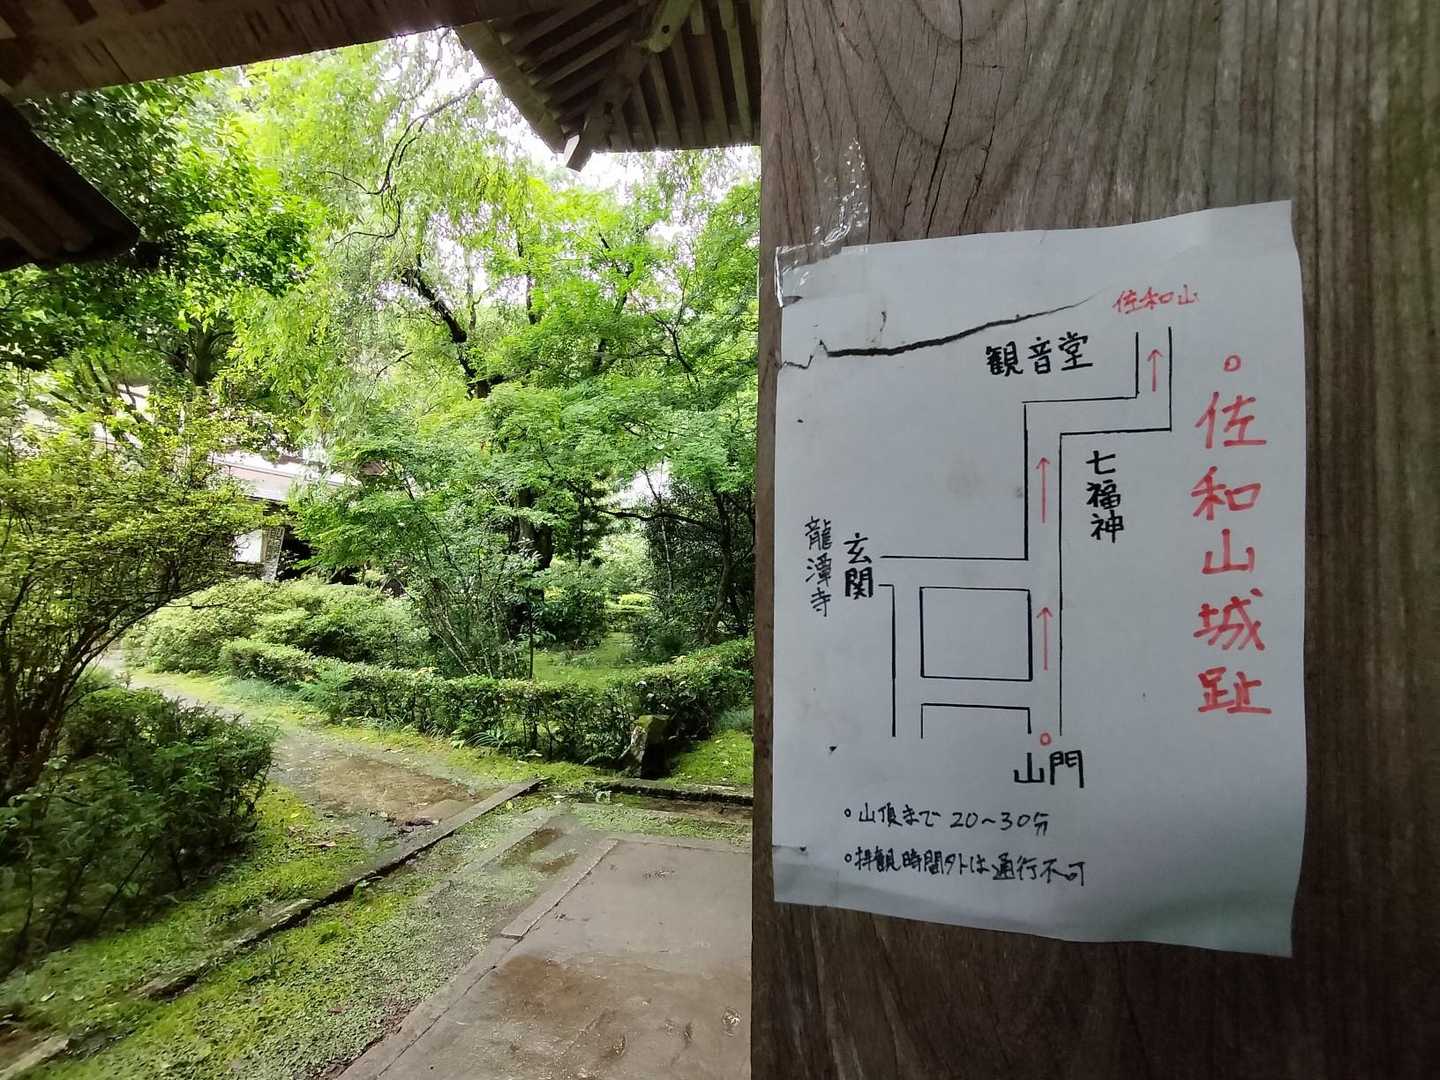 佐和山
観音堂
七福神
玄関
龍潭寺
山門
。佐和山城趾
。山頂まで 20〜30分
。拝観時間外は通行不可